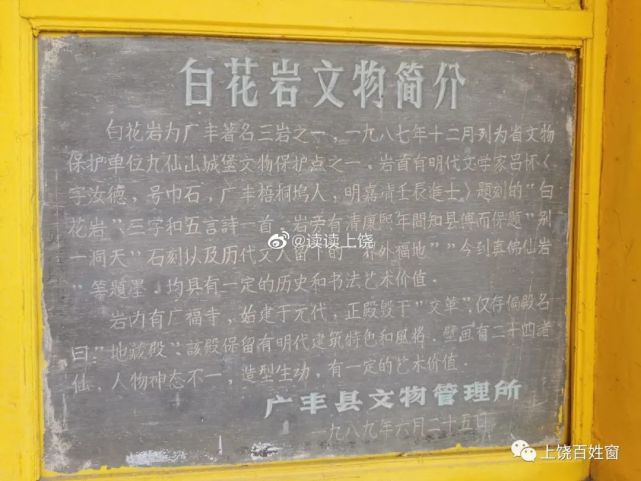 白花岩文物简介
白花岩为广丰著名三岩之一，一九八七年十二月列为省文物
保护单位九仙山城堡文物保护点之一，岩首有明代文学家吕怀〈
字汝德，号巾石，广丰梧桐坞人，明嘉靖壬辰進士〉题刻的“白
花岩”三字和五言詩一首，岩旁有清康熙年間知县傅而保題“别
一洞天”石刻以及历代文人留下的“界外福地”“今到真佛仙岩
”等題墨，均具有一定的历史和书法艺术价值．
岩内有广福寺，始建于元代，正殿毁于“文革”，仅存偏殿名
曰：“地藏殿”，該殿保留有明代建筑特色和風格．壁画有二十四诸
仙、人物神态不一，造型生动，有一定的艺术价值．
广丰县文物管理所
一九八九年六月二十五日
@读读上饶
上饶百姓窗